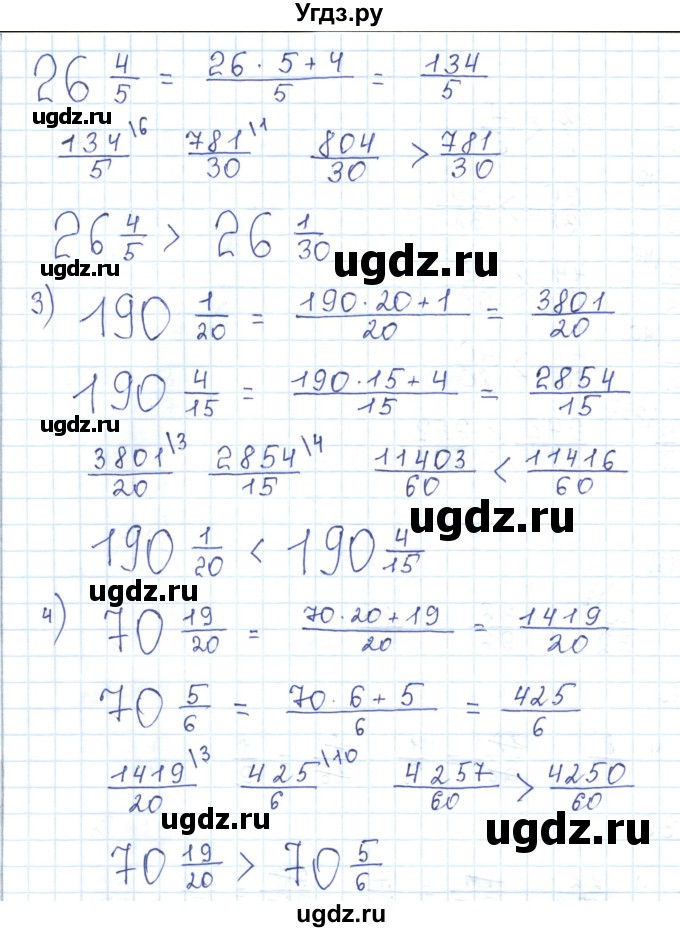 Угдз.ру
26 4/5 = (26 · 5 + 4)/5 = 134/5
ugdz.ru
134/5 \6 781/30 \1 804/30 > 781/30
26 4/5 > 26 1/30
ugdz.ru
ugdz.ru
3) 190 1/20 = (190 · 20 + 1)/20 = 3801/20
190 4/15 = (190 · 15 + 4)/15 = 2854/15
ugdz.ru
3801/20 \3 2854/15 \4 11403/60 < 11416/60
ugdz.ru
190 1/20 < 190 4/15
ugdz.ru
4) 70 19/20 = (70 · 20 + 19)/20 = 1419/20
70 5/6 = (70 · 6 + 5)/6 = 425/6
ugdz.ru
1419/20 \3 425/6 \10 4257/60 > 4250/60
ugdz.ru
ugdz.ru
70 19/20 > 70 5/6
ugdz.ru